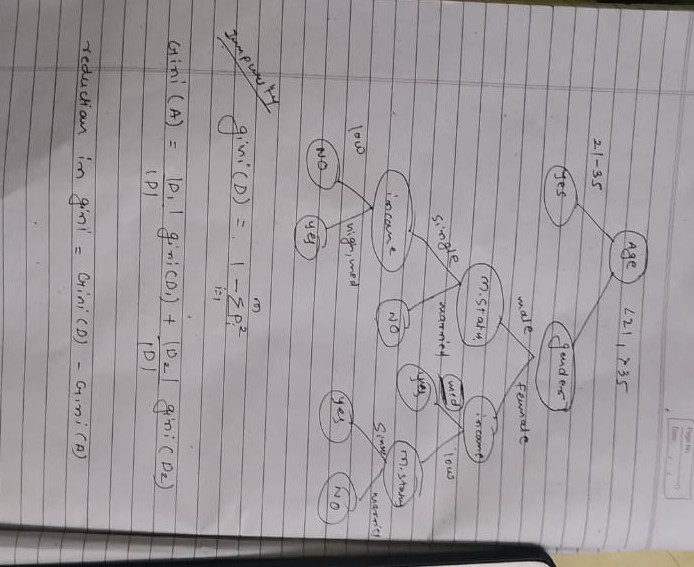 Page No.
Date
Age <21, >35
21-35
yes gender
male female
m.statu. income
single married med low
income NO yes m.status
low high, med married
NO yes yes NO
Impurity
gini(D) = 1 - Σ Pi²
m
i=1
Gini(A) = |D1| gini(D1) + |D2| gini(D2)
|D| |D|
reduction in gini = Gini(D) - Gini(A)